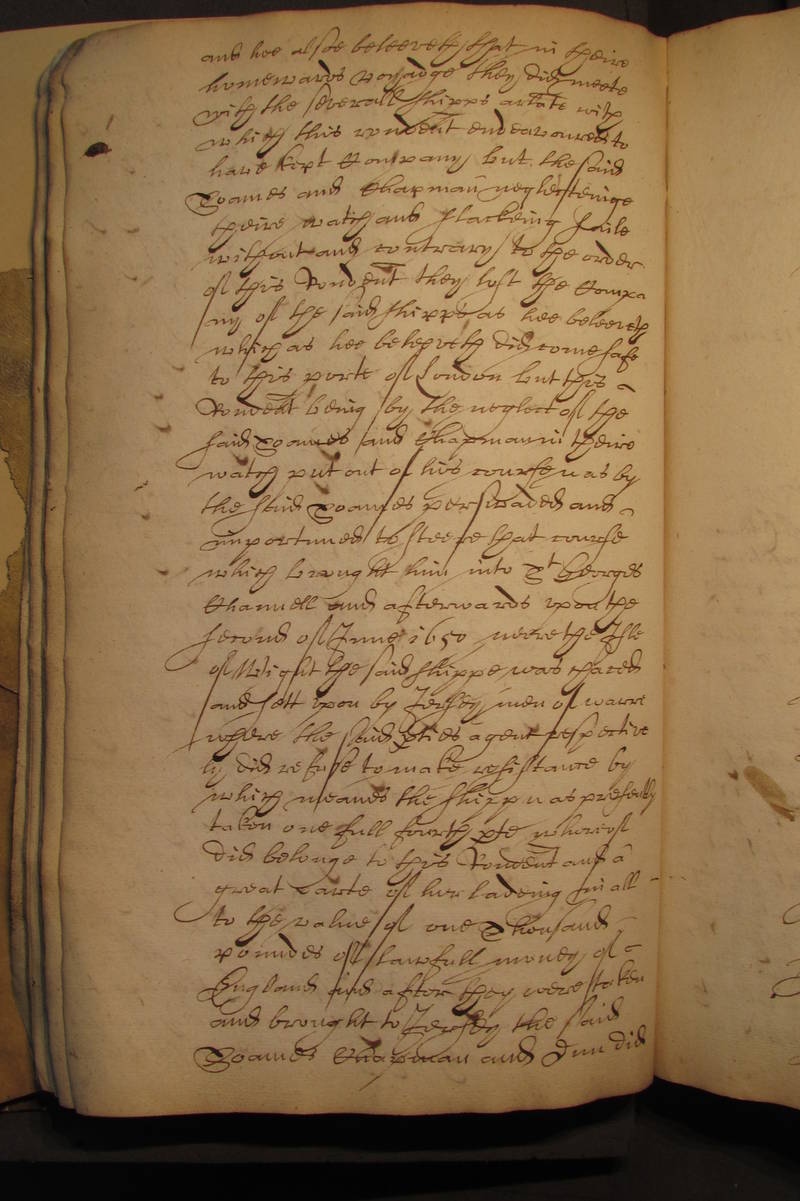 and hee alsoe beleeveth that in theire
homewards voyadge they did meete
with the severall shipps arlate with
which this rondent endeavoured to
have kept Company but the said
Soames and Chapman neglecteinge
theire watch and slackeing saile
without and contrary to the order
of this Rondent they lost the Compa
ny of the said shipps as hee beleeveth
which as hee beleeveth did come safe
to this porte of London but this
Rondent being by the neglect of the
said Soames and Chapman in theire
watch put out of his course was by
the said Soames perswaded and
importuned to steere that course
which brought him into St Georges
Channell and afterwards upon the
second of June 1650 neere the Isle
of Wight the said shippe was chaced
and sett upon by Jersey men of warre
where the said pties agent respective
ly did refuse to make resistance by
which meanes the shipp was presently
taken one full fourth pte whereof
did belonge to this Rondent and a
great parte of her ladeing in all
to the value of one Thousand
poundes of lawfull money of
England and after they were taken
and brought to Jersey the said
Soames Chapman and did